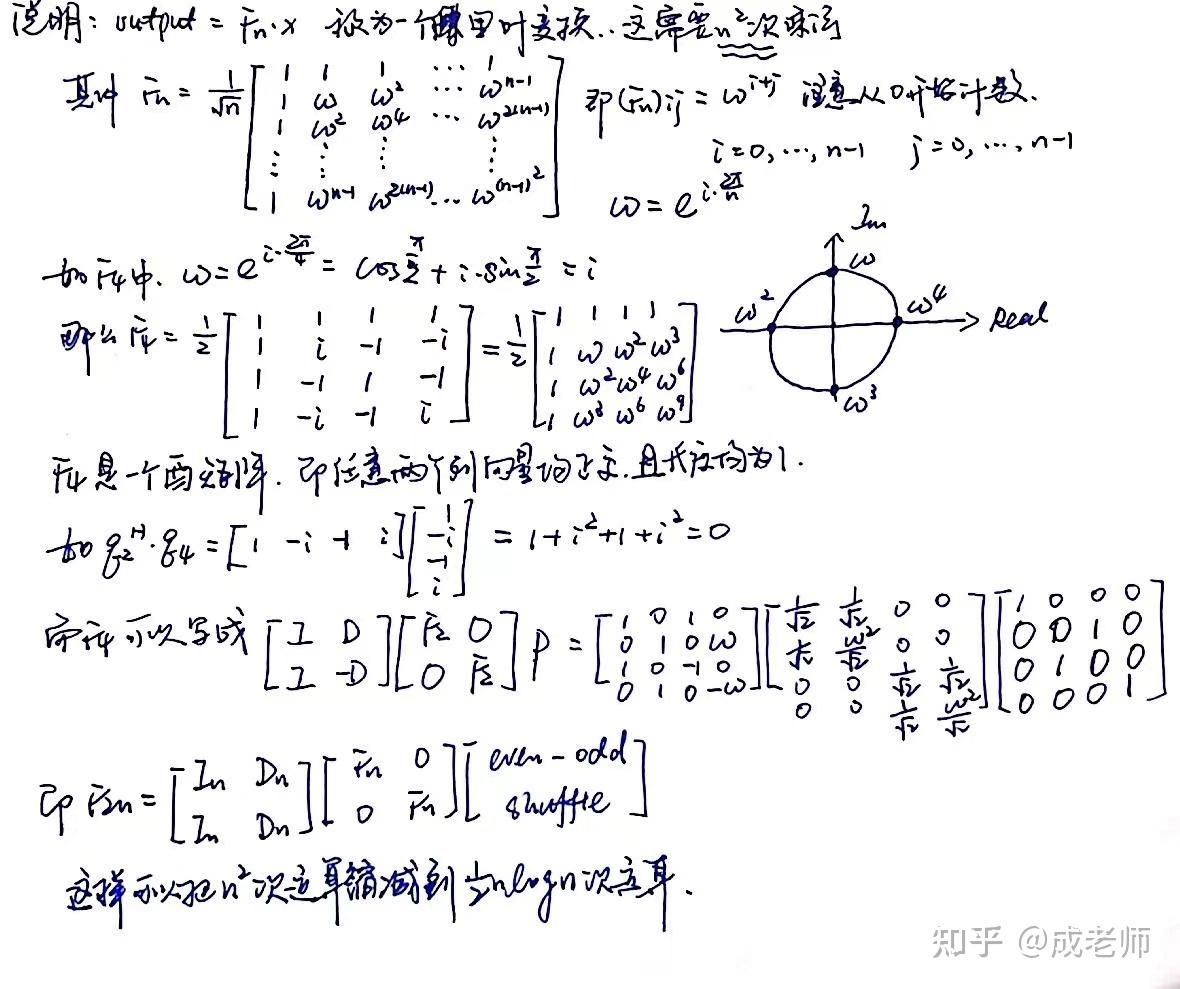 说明: output = Fn·x 称为一个傅里叶变换..这需要n²次乘法
其中 Fn = 1/√n [1 1 1 ⋯ 1; 1 ω ω² ⋯ ω^(n-1); 1 ω² ω⁴ ⋯ ω^(2(n-1)); ⋮ ⋮ ⋮ ⋮; 1 ω^(n-1) ω^(2(n-1)) ⋯ ω^((n-1)²)] 即(Fn)ij = ω^(i+j) 注意从0开始计数.
i=0,⋯,n-1 j=0,⋯,n-1
ω = e^(i·2π/n)
如F4中. ω = e^(i·2π/4) = cos π/2 + i·sin π/2 = i
Im
ω
ω² ω⁴ Real
ω³
那么 F4 = 1/2 [1 1 1 1; 1 i -1 -i; 1 -1 1 -1; 1 -i -1 i] = 1/2 [1 1 1 1; 1 ω ω² ω³; 1 ω² ω⁴ ω⁶; 1 ω³ ω⁶ ω⁹]
F4是一个酉矩阵. 即任意两个列向量均正交.且长度均为1.
如 q₂ᴴ·q₄ = [1 -i -1 i][1; -i; -1; i] = 1+i²+1+i²=0
而F4可以写成 [I D; I -D][F2 0; 0 F2] P = [1 0 1 0; 0 1 0 ω; 1 0 -1 0; 0 1 0 -ω][1/√2 1/√2 0 0; 1/√2 ω²/√2 0 0; 0 0 1/√2 1/√2; 0 0 1/√2 ω²/√2][1 0 0 0; 0 0 1 0; 0 1 0 0; 0 0 0 1]
即 F2n = [In Dn; In Dn][Fn 0; 0 Fn][even-odd shuffle]
这样可以把n²次运算缩减到½nlogn次运算.
知乎 @成老师